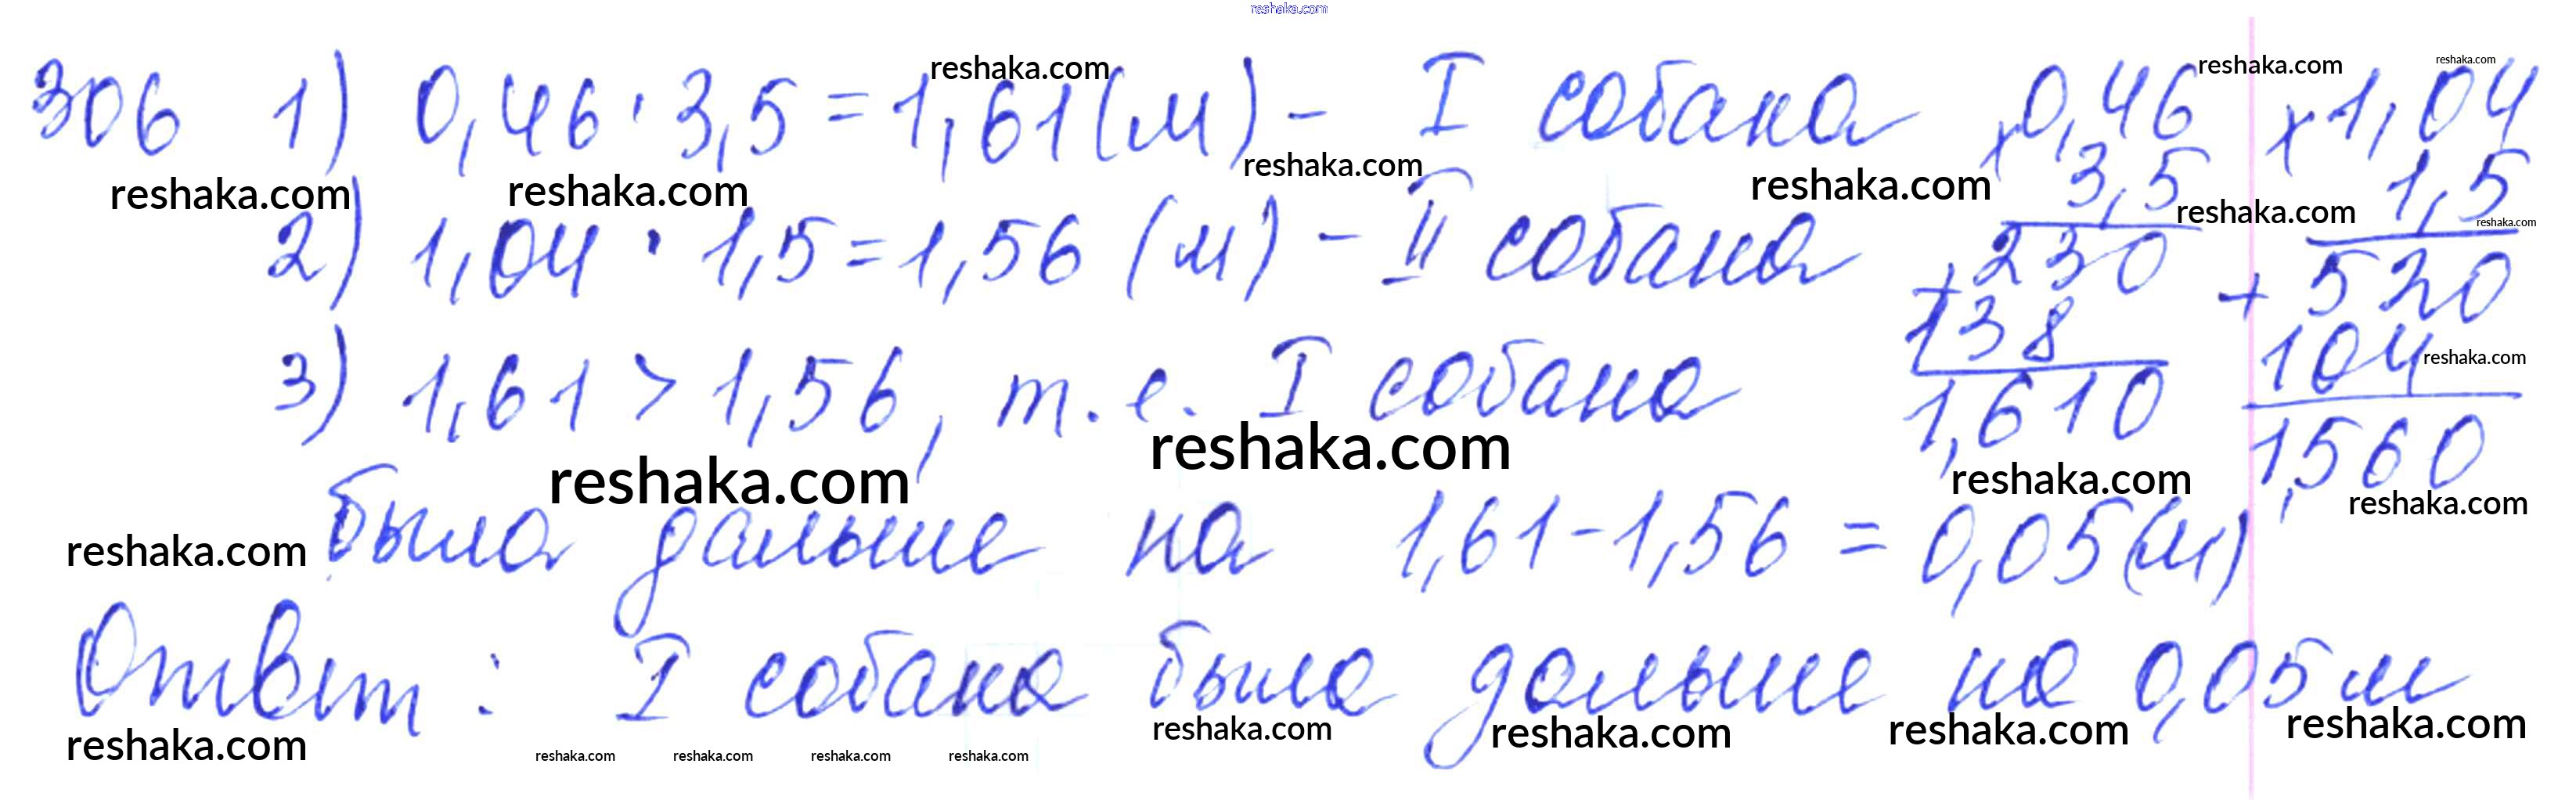 reshaka.com
306 1) 0,46 · 3,5 = 1,61 (м) - I собака
2) 1,04 · 1,5 = 1,56 (м) - II собака
3) 1,61 > 1,56, т.е. I собака
была дальше на 1,61 - 1,56 = 0,05 (м)
Ответ: I собака была дальше на 0,05 м
× 0,46
3,5
+ 230
138
1,610
× 1,04
1,5
+ 520
104
1,560
reshaka.com reshaka.com reshaka.com
reshaka.com reshaka.com reshaka.com reshaka.com
reshaka.com reshaka.com
reshaka.com
reshaka.com reshaka.com reshaka.com reshaka.com
reshaka.com
reshaka.com reshaka.com reshaka.com reshaka.com
reshaka.com reshaka.com reshaka.com reshaka.com reshaka.com